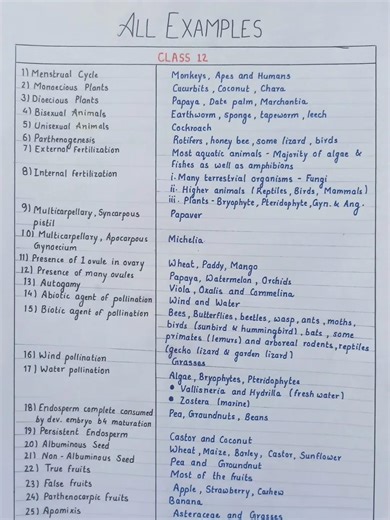 ALL EXAMPLES
CLASS 12
1) Menstrual Cycle Monkeys, Apes and Humans
2) Monoecious Plants Cucurbits, Coconut, Chara
3) Dioecious Plants Papaya, Date palm, Marchantia
4) Bisexual Animals Earthworm, sponge, tapeworm, leech
5) Unisexual Animals Cockroach
6) Parthenogenesis Rotifers, honey bee, some lizard, birds
7) External Fertilization Most aquatic animals - Majority of algae &
fishes as well as amphibians
8) Internal fertilization i. Many terrestrial organisms - Fungi
ii. Higher animals (Reptiles, Birds, Mammals)
iii. Plants - Bryophyte, Pteridophyte, Gyn. & Ang.
9) Multicarpellary, Syncarpous Papaver
pistil
10) Multicarpellary, Apocarpous Michelia
Gynoecium
11) Presence of 1 ovule in ovary Wheat, Paddy, Mango
12) Presence of many ovules Papaya, Watermelon, Orchids
13) Autogamy Viola, Oxalis and Commelina
14) Abiotic agent of pollination Wind and Water
15) Biotic agent of pollination Bees, Butterflies, beetles, wasp, ants, moths,
birds (sunbird & hummingbird), bats, some
primates (lemurs) and arboreal rodents, reptiles
(gecko lizard & garden lizard)
16) Wind pollination Grasses
17) Water pollination Algae, Bryophytes, Pteridophytes
• Vallisneria and Hydrilla (fresh water)
• Zostera (marine)
18) Endosperm complete consumed Pea, Groundnuts, Beans
by dev. embryo b4 maturation
19) Persistent Endosperm Castor and Coconut
20) Albuminous Seed Wheat, Maize, Barley, Castor, Sunflower
21) Non-Albuminous Seed Pea and Groundnut
22) True fruits Most of the fruits
23) False fruits Apple, Strawberry, Cashew
24) Parthenocarpic Fruits Banana
25) Apomixis Asteraceae and Grasses